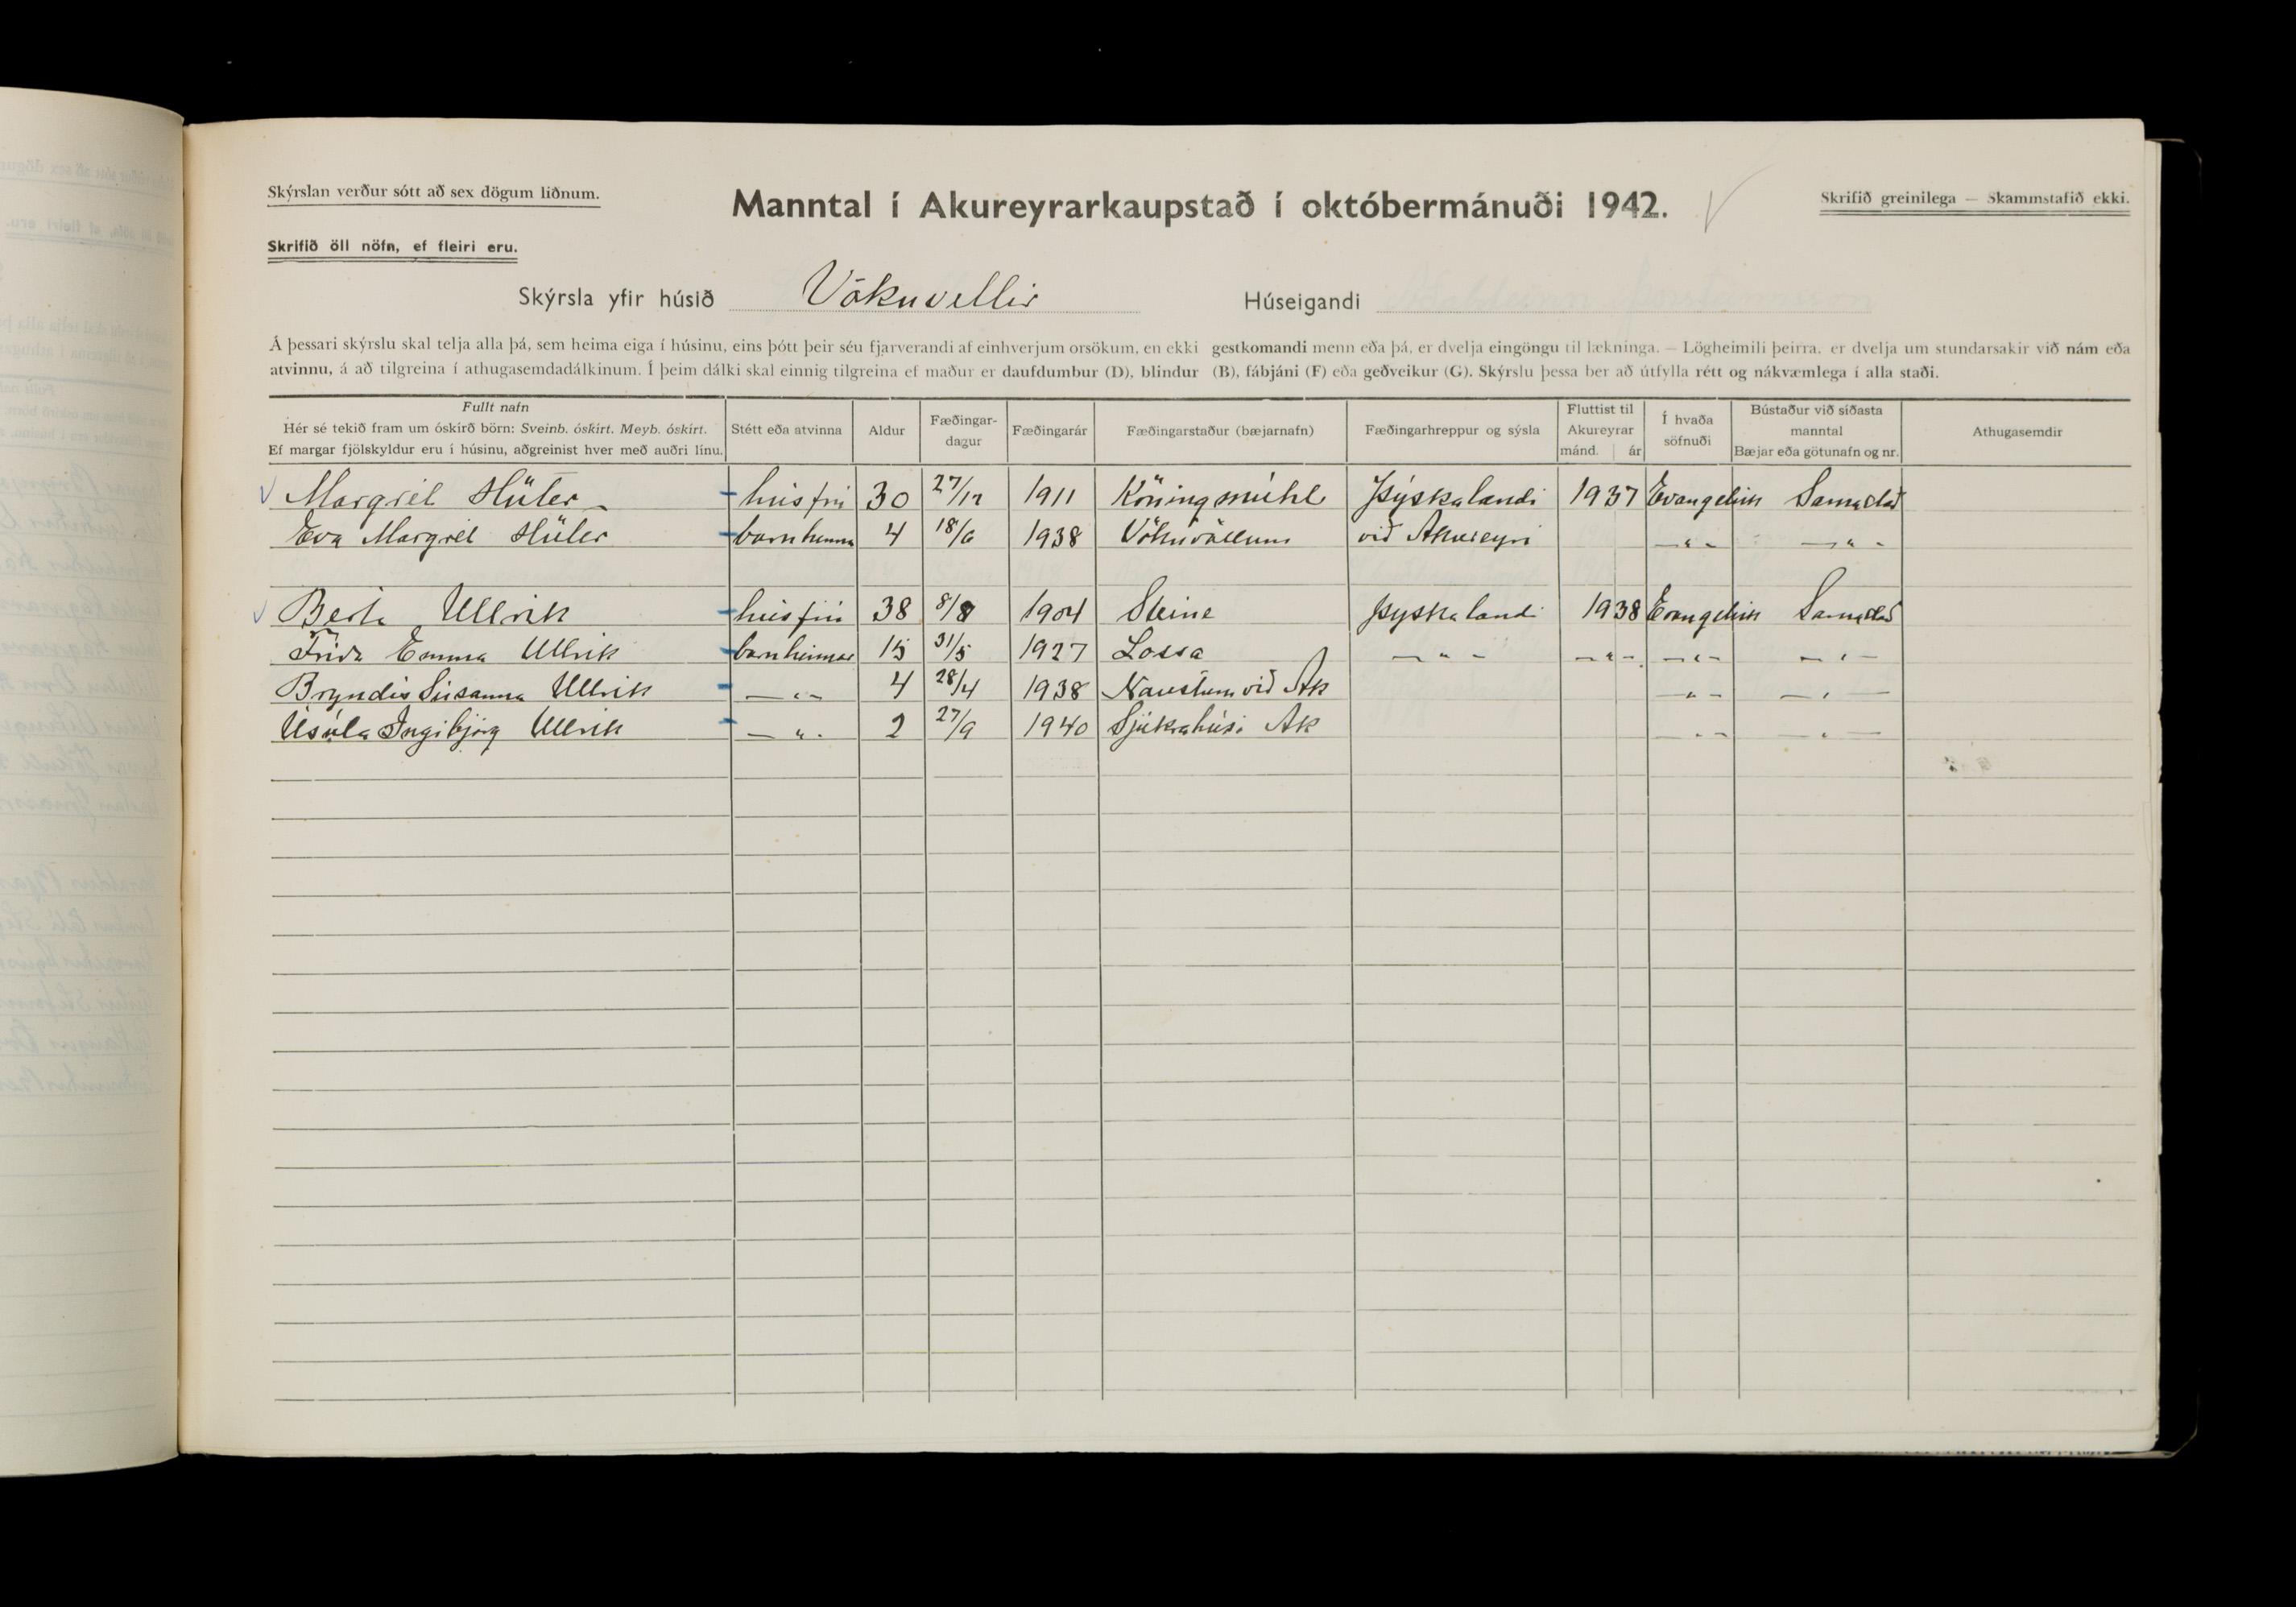 Skýrslan verður sótt að sex dögum liðnum.
Manntal í Akureyrarkaupstað í októbermánuði 1942.
Skrifið greinilega — Skammstafið ekki.
Skrifið öll nöfn, ef fleiri eru.
Skýrsla yfir húsið Vökuvellir Húseigandi
Á þessari skýrslu skal telja alla þá, sem heima eiga í húsinu, eins þótt þeir séu fjarverandi af einhverjum orsökum, en ekki gestkomandi menn eða þá, er dvelja eingöngu til lækninga. — Lögheimili þeirra, er dvelja um stundarsakir við nám eða
atvinnu, á að tilgreina í athugasemdadálkinum. Í þeim dálki skal einnig tilgreina ef maður er daufdumbur (D), blindur (B), fábjáni (F) eða geðveikur (G). Skýrslu þessa ber að útfylla rétt og nákvæmlega í alla staði.
Fullt nafn
Hér sé tekið fram um óskírð börn: Sveinb. óskírt. Meyb. óskírt.
Ef margar fjölskyldur eru í húsinu, aðgreinist hver með auðri línu.
Stétt eða atvinna
Aldur
Fæðingar-
dagur
Fæðingarár
Fæðingarstaður (bæjarnafn)
Fæðingarhreppur og sýsla
Fluttist til
Akureyrar
mánd. ár
Í hvaða
söfnuði
Bústaður við síðasta
manntal
Bæjar eða götunafn og nr.
Athugasemdir
Margrét Hüler húsfrú 30 27/12 1911 Köningsmühl Þýskalandi 1937 Evangelisk Samastað
Eva Margrét Hüler barn hennar 4 18/6 1938 Vökuvöllum við Akureyri —"— —"—
Berta Ullrik húsfrú 38 8/8 1904 Steine Þyskalandi 1938 Evangelisk Samastað
Frida Emma Ullrik barn hennar 15 31/5 1927 Lossa —"— —"— —"— —"—
Bryndís Súsanna Ullrik —"— 4 28/4 1938 Naustum við Ak —"— —"—
Úsúla Ingibjörg Ullrik —"— 2 27/9 1940 Sjúkrahúsi Ak —"— —"—